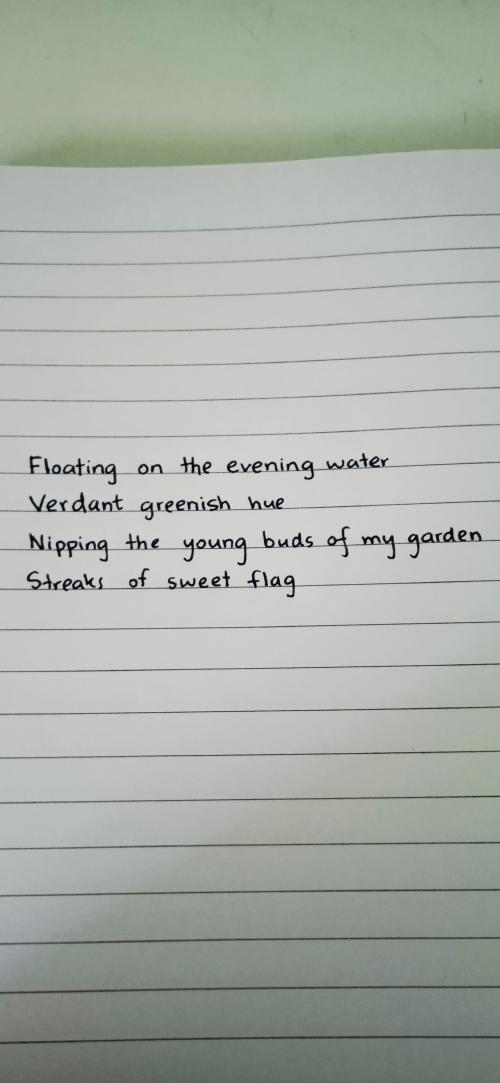 Floating on the evening water
Verdant greenish hue
Nipping the young buds of my garden
Streaks of sweet flag